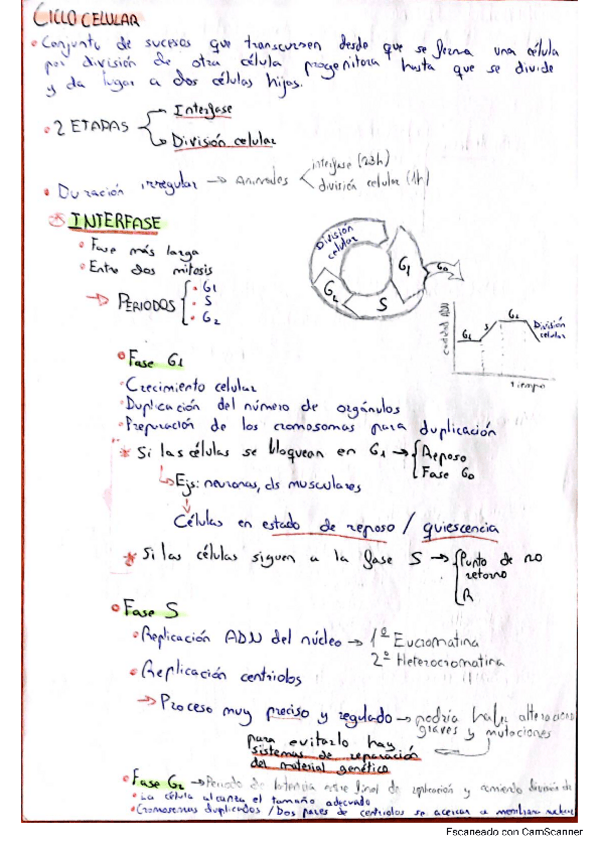 CICLO CELULAR
• Conjunto de sucesos que transcurren desde que se forma una célula
por división de otra célula progenitora hasta que se divide
y da lugar a dos células hijas.
• 2 ETAPAS
Interfase
División celular
• Duración irregular → Animales
interfase (23h)
división celular (1h)
INTERFASE
• Fase más larga
• Entre dos mitosis
→ PERIODOS
• G1
• S
• G2
División celular
G1
G0
G2
S
cantidad ADN
G1
S
G2
División celular
Tiempo
• Fase G1
• Crecimiento celular
• Duplicación del número de orgánulos
• Preparación de los cromosomas para duplicación
* Si las células se bloquean en G1 →
Reposo
Fase G0
Ejs: neuronas, cls musculares
Células en estado de reposo / quiescencia
* Si las células siguen a la fase S →
Punto de no
retorno
R
• Fase S
• Replicación ADN del núcleo → 1º Eucromatina
2º Heterocromatina
• Replicación centriolos
→ Proceso muy preciso y regulado → podría haber alteraciones
graves y mutaciones
para evitarlo hay
sistemas de reparación
del material genético
• Fase G2 → Periodo de latencia entre final de replicación y comienzo división
• La célula alcanza el tamaño adecuado
• Cromosomas duplicados / Dos pares de centriolos se acercan a membrana
Escaneado con CamScanner